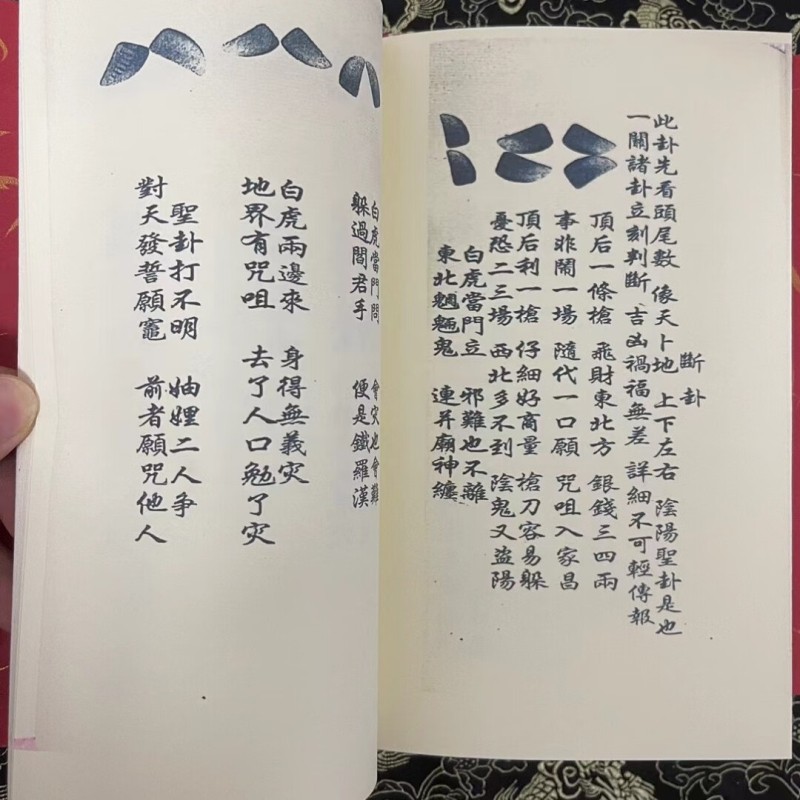 斷卦
此卦先看頭尾數 像天卜地 上下左右 陰陽聖卦是也
一關諸卦立刻判斷 吉凶禍福無差 詳細不可輕傳報
頂后一條槍 飛財東北方 銀錢三四兩
事非鬧一場 隨代一口願 咒咀入家昌
頂后利一槍 仔細好商量 槍刀容易躲
憂恐二三場 西北多不到 陰鬼又盜陽
白虎當門立 邪難也不離
東北魍魎鬼 連并廟神纏
白虎當門問 會灾也會難
躲過閻君手 便是鐵羅漢
白虎兩邊來 身得無義灾
地界有咒咀 去了人口勉了灾
聖卦打不明 妯娌二人爭
對天發誓願竈 前者願咒他人